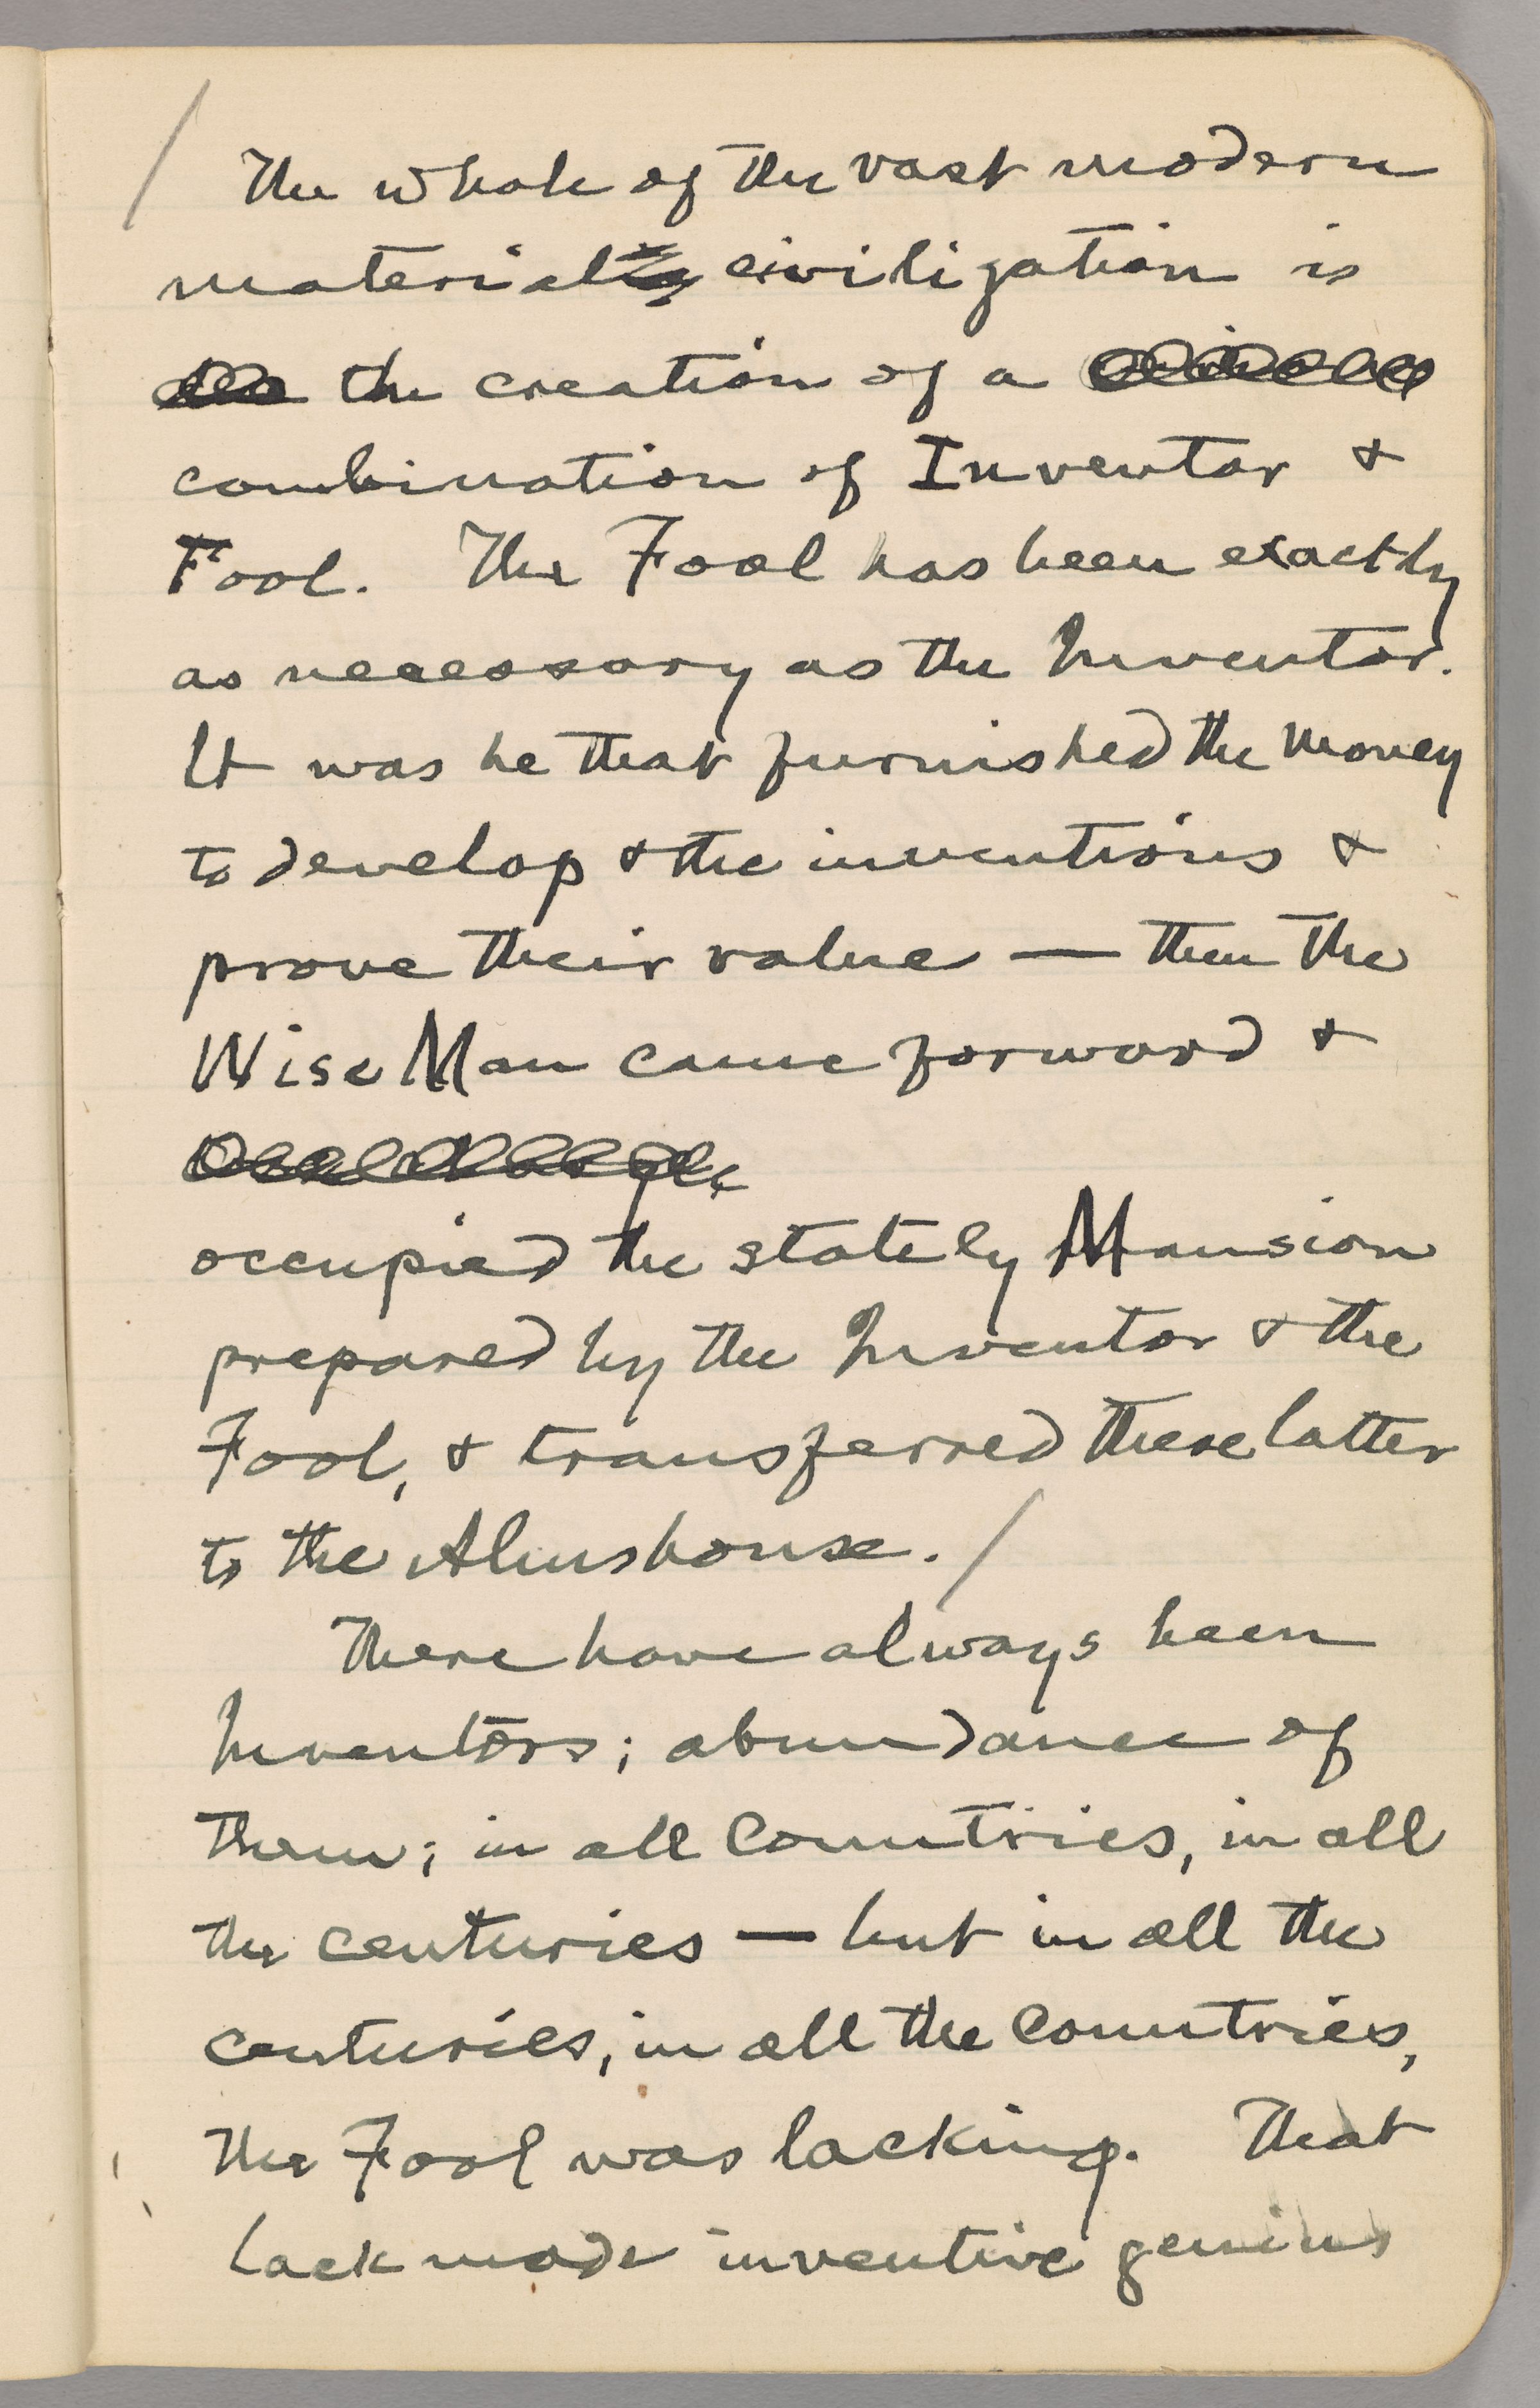 The whole of the vast modern
material civilization is
the creation of a
combination of Inventor &
Fool. The Fool has been exactly
as necessary as the Inventor.
It was he that furnished the money
to develop & the inventions &
prove their value — then the
Wise Man came forward &
occupied the stately Mansion
prepared by the Inventor & the
Fool, & transferred these latter
to the Almshouse. /
There have always been
Inventors; abundance of
them; in all countries, in all
the centuries — but in all the
centuries, in all the countries,
the Fool was lacking. That
lack made inventive genius